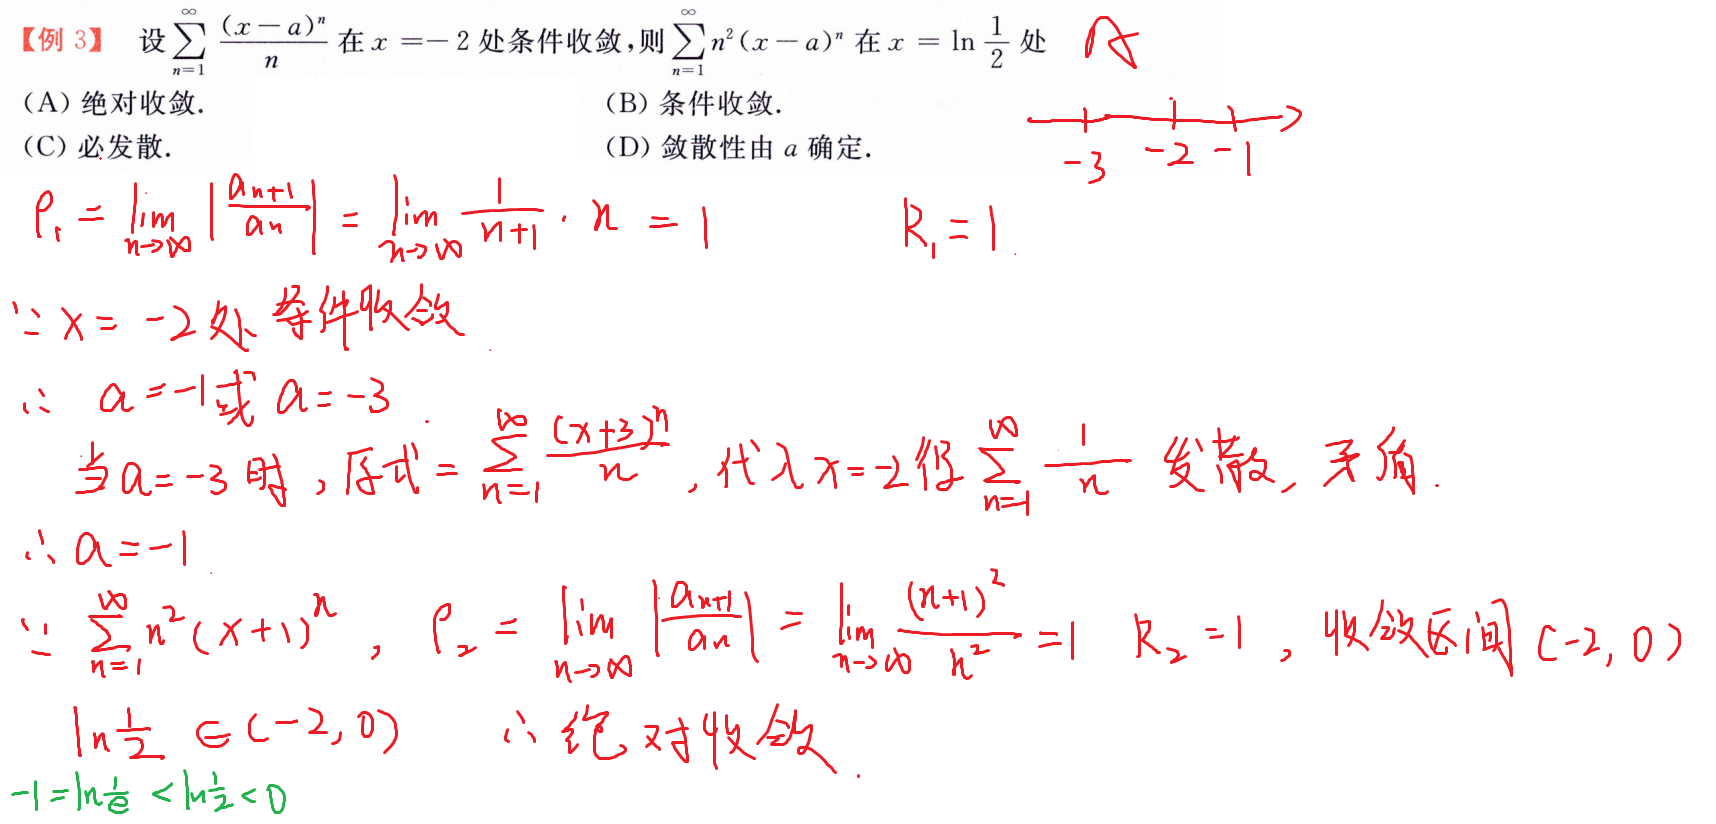 【例 3】 设 $\sum_{n=1}^{\infty} \frac{(x-a)^n}{n}$ 在 x = -2 处条件收敛,则 $\sum_{n=1}^{\infty} n^2(x-a)^n$ 在 x = $\ln \frac{1}{2}$ 处 A
(A) 绝对收敛. (B) 条件收敛.
(C) 必发散. (D) 敛散性由 a 确定.
-3 -2 -1
$\rho_1 = \lim_{n\to\infty} \left|\frac{a_{n+1}}{a_n}\right| = \lim_{n\to\infty} \frac{1}{n+1} \cdot n = 1$ $R_1 = 1$.
∵ x = -2 处 条件收敛
∴ a = -1 或 a = -3.
当 a = -3 时, 原式 = $\sum_{n=1}^{\infty} \frac{(x+3)^n}{n}$, 代入 x = -2 得 $\sum_{n=1}^{\infty} \frac{1}{n}$ 发散, 矛盾.
∴ a = -1
∵ $\sum_{n=1}^{\infty} n^2(x+1)^n$, $\rho_2 = \lim_{n\to\infty} \left|\frac{a_{n+1}}{a_n}\right| = \lim_{n\to\infty} \frac{(n+1)^2}{n^2} = 1$ $R_2 = 1$, 收敛区间 (-2, 0)
$\ln\frac{1}{2}$ ∈ (-2, 0) ∴ 绝对收敛.
$-1 = \ln\frac{1}{e} < \ln\frac{1}{2} < 0$